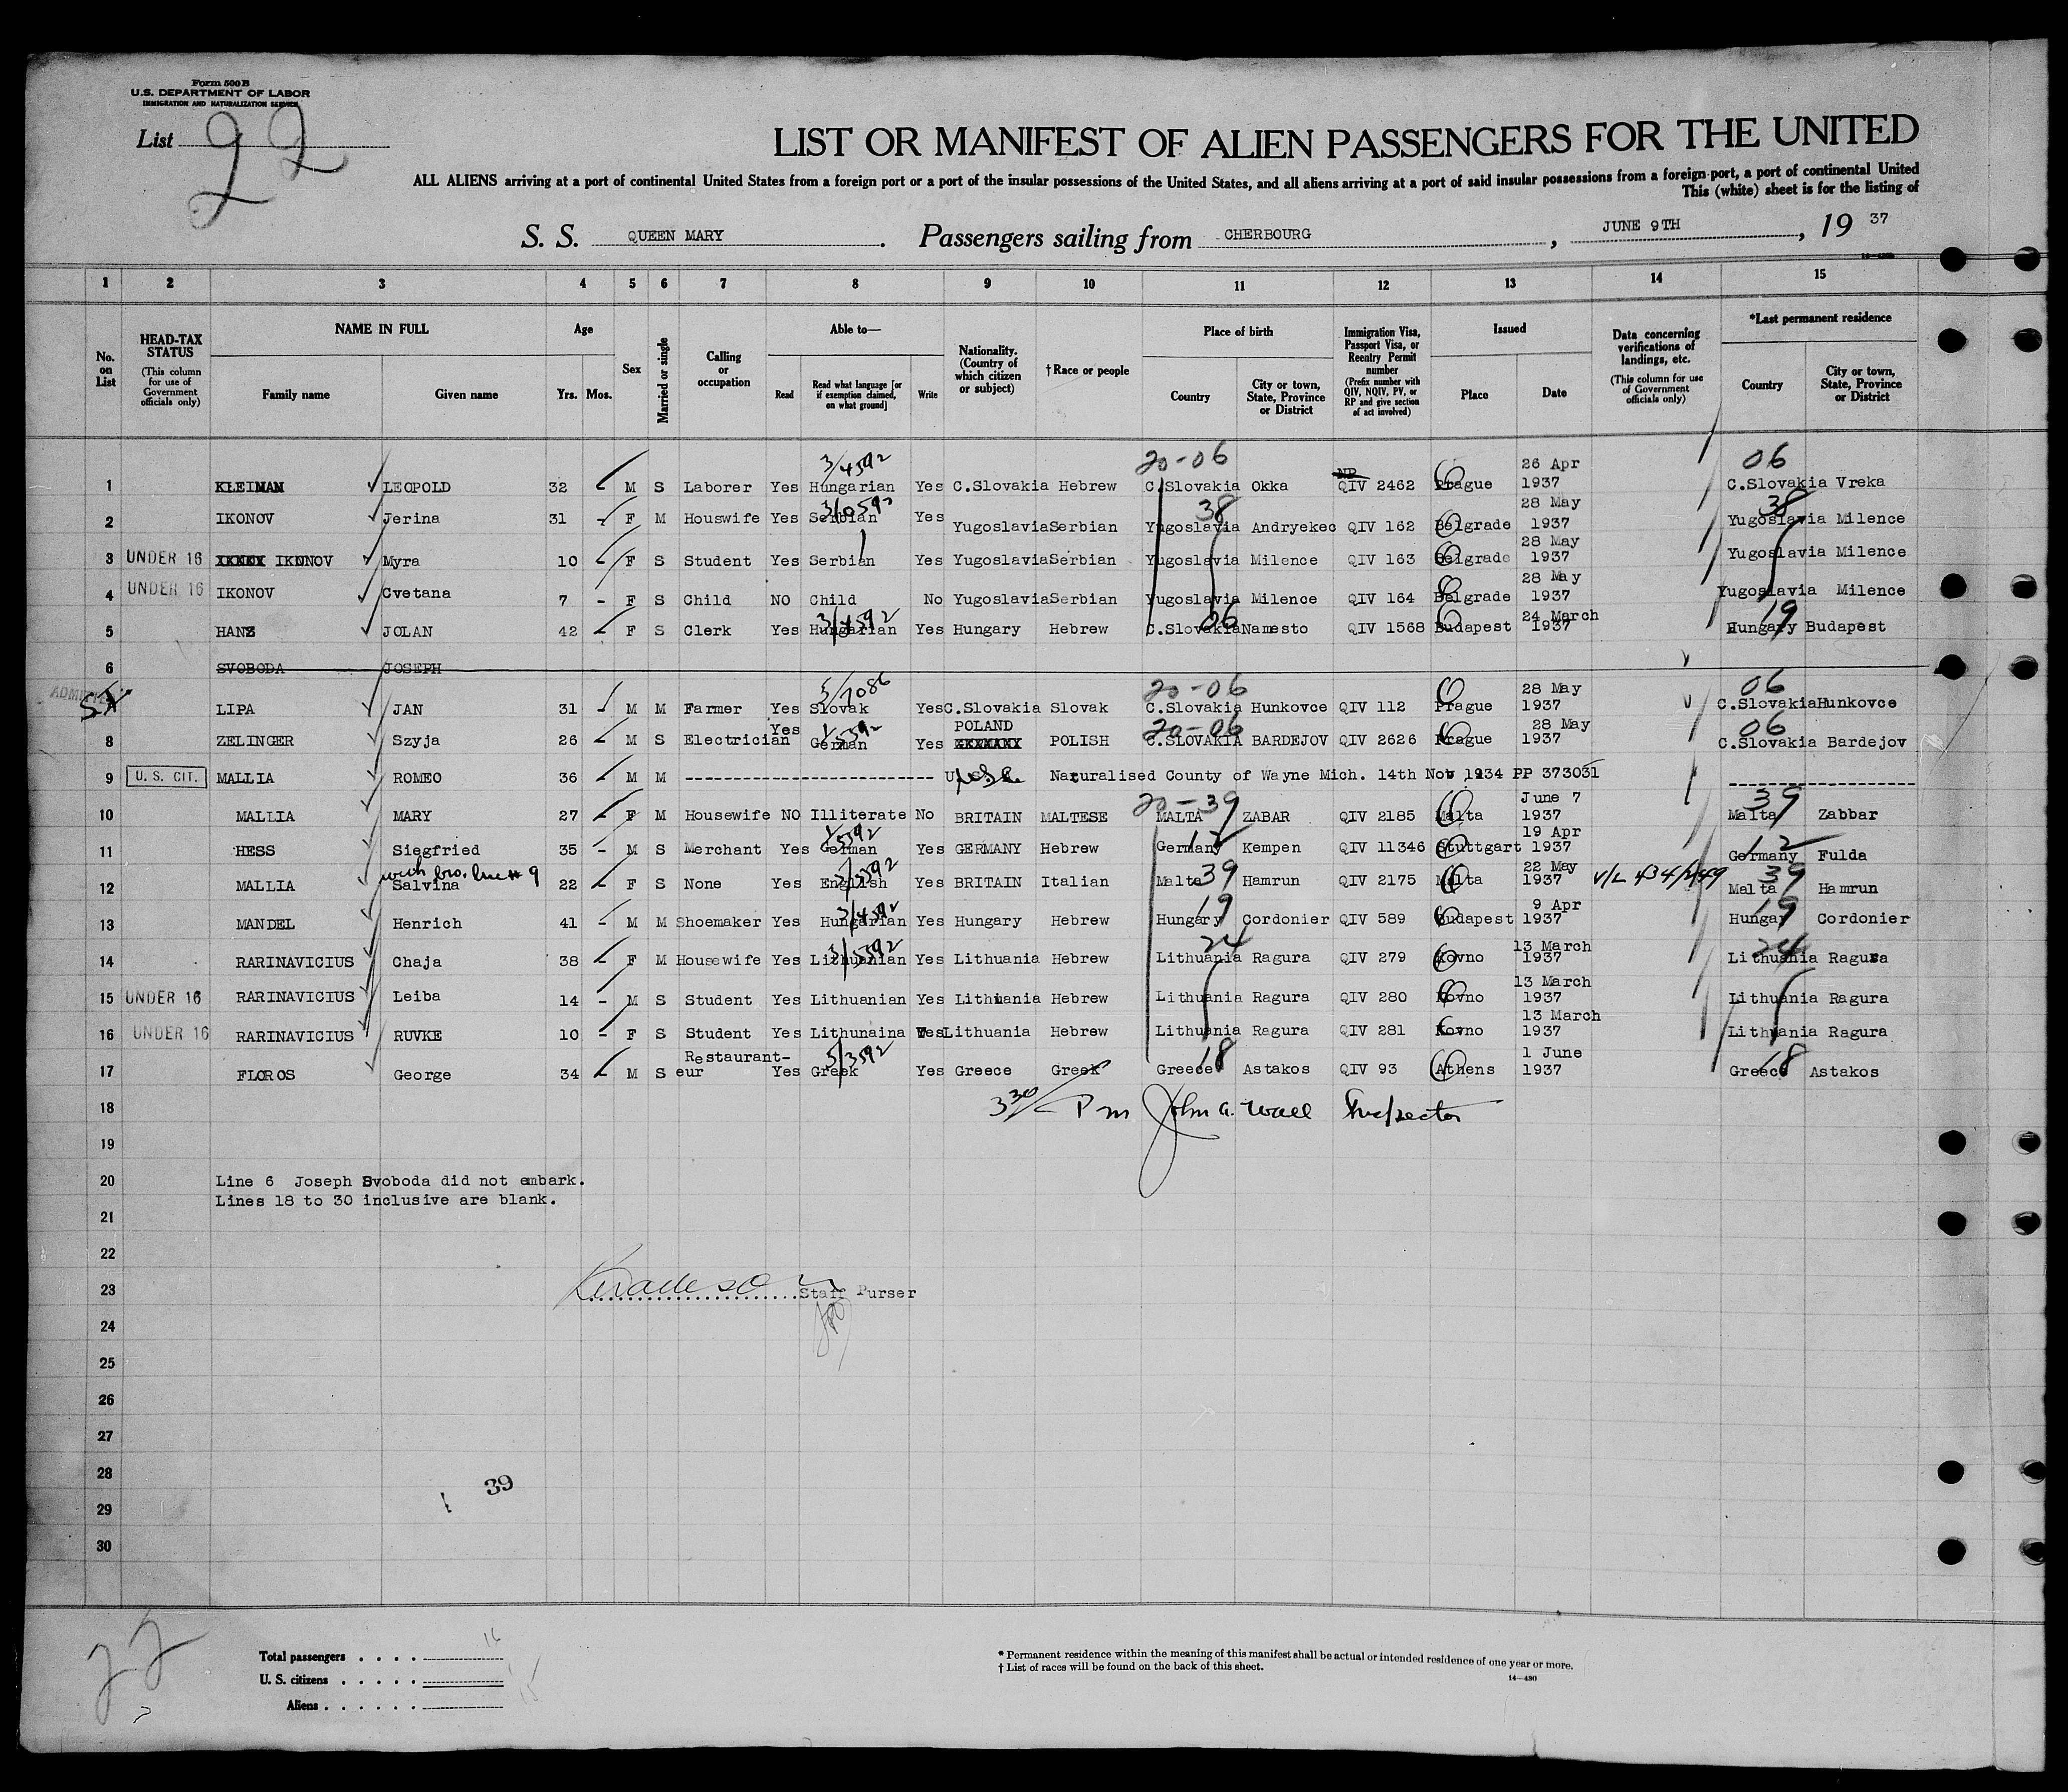 Form 500 B
U.S. DEPARTMENT OF LABOR
IMMIGRATION AND NATURALIZATION SERVICE
List 22
LIST OR MANIFEST OF ALIEN PASSENGERS FOR THE UNITED
ALL ALIENS arriving at a port of continental United States from a foreign port or a port of the insular possessions of the United States, and all aliens arriving at a port of said insular possessions from a foreign port, a port of continental United
This (white) sheet is for the listing of
S. S. QUEEN MARY. Passengers sailing from CHERBOURG, JUNE 9TH, 19 37
1 2 3 4 5 6 7 8 9 10 11 12 13 14 15
No. on List
HEAD-TAX STATUS
(This column for use of Government officials only)
NAME IN FULL
Family name Given name
Age
Yrs. Mos.
Sex
Married or single
Calling or occupation
Able to—
Read
Read what language [or if exemption claimed, on what ground]
Write
Nationality. (Country of which citizen or subject)
†Race or people
Place of birth
Country
City or town, State, Province or District
Immigration Visa, Passport Visa, or Reentry Permit number
(Prefix number with QIV, NQIV, PV, or RP and give section of act involved)
Issued
Place Date
Data concerning verifications of landings, etc.
(This column for use of Government officials only)
*Last permanent residence
Country
City or town, State, Province or District
3/4592 20-06 NP 26 Apr 06
1 KLEIMAN LEOPOLD 32 M S Laborer Yes Hungarian Yes C.Slovakia Hebrew C.Slovakia Okka QIV 2462 Prague 1937 C.Slovakia Vreka
3/0592 38 28 May 38
2 IKONOV Jerina 31 - F M Houswife Yes Serbian Yes Yugoslavia Serbian Yugoslavia Andryekec QIV 162 Belgrade 1937 Yugoslavia Milence
28 May
3 UNDER 16 IKONOV Myra 10 - F S Student Yes Serbian Yes Yugoslavia Serbian Yugoslavia Milence QIV 163 Belgrade 1937 Yugoslavia Milence
28 May
4 UNDER 16 IKONOV Cvetana 7 - F S Child NO Child No Yugoslavia Serbian Yugoslavia Milence QIV 164 Belgrade 1937 Yugoslavia Milence
3/4592 06 24 March 19
5 HANZ JOLAN 42 - F S Clerk Yes Hungarian Yes Hungary Hebrew C.Slovakia Namesto QIV 1568 Budapest 1937 Hungary Budapest
6 SVOBODA JOSEPH
ADMITTED
5/7086 20-06 28 May 06
LIPA JAN 31 - M M Farmer Yes Slovak Yes C.Slovakia Slovak C.Slovakia Hunkovce QIV 112 Prague 1937 C.Slovakia Hunkovce
Yes POLAND 20-06 28 May 06
8 ZELINGER Szyja 26 - M S Electrician German Yes POLISH C.SLOVAKIA BARDEJOV QIV 2626 Prague 1937 C.Slovakia Bardejov
9 U. S. CIT. MALLIA ROMEO 36 - M M Naturalised County of Wayne Mich. 14th Nov 1934 PP 373031
20-39 June 7 39
10 MALLIA MARY 27 - F M Housewife NO Illiterate No BRITAIN MALTESE MALTA ZABAR QIV 2185 Malta 1937 Malta Zabbar
12 19 Apr 12
11 HESS Siegfried 35 - M S Merchant Yes German Yes GERMANY Hebrew Germany Kempen QIV 11346 Stuttgart 1937 Germany Fulda
with bro. line # 9 3/3592 39 22 May 39
12 MALLIA Salvina 22 - F S None Yes English Yes BRITAIN Italian Malta Hamrun QIV 2175 Malta 1937 Malta Hamrun
3/4592 19 9 Apr 19
13 MANDEL Henrich 41 - M M Shoemaker Yes Hungarian Yes Hungary Hebrew Hungary Cordonier QIV 589 Budapest 1937 Hungary Cordonier
3/5592 24 13 March 24
14 RARINAVICIUS Chaja 38 - F M Housewife Yes Lithuanian Yes Lithuania Hebrew Lithuania Ragura QIV 279 Kovno 1937 Lithuania Ragura
13 March
15 UNDER 16 RARINAVICIUS Leiba 14 - M S Student Yes Lithuanian Yes Lithuania Hebrew Lithuania Ragura QIV 280 Kovno 1937 Lithuania Ragura
13 March
16 UNDER 16 RARINAVICIUS RUVKE 10 - F S Student Yes Lithunaina Yes Lithuania Hebrew Lithuania Ragura QIV 281 Kovno 1937 Lithuania Ragura
Restaurant- 5/3592 18 1 June 18
17 FLOROS George 34 - M S eur Yes Greek Yes Greece Greek Greece Astakos QIV 93 Athens 1937 Greece Astakos
18 3 30/ P m John A. Wall Inspector
19
20 Line 6 Joseph Svoboda did not embark.
Lines 18 to 30 inclusive are blank.
21
22
23 Staff Purser
24
25
26
27
28
39
29
30
22
Total passengers . . . . 16
U. S. citizens . . . . .
Aliens . . . . . 15
* Permanent residence within the meaning of this manifest shall be actual or intended residence of one year or more.
† List of races will be found on the back of this sheet.
14—480